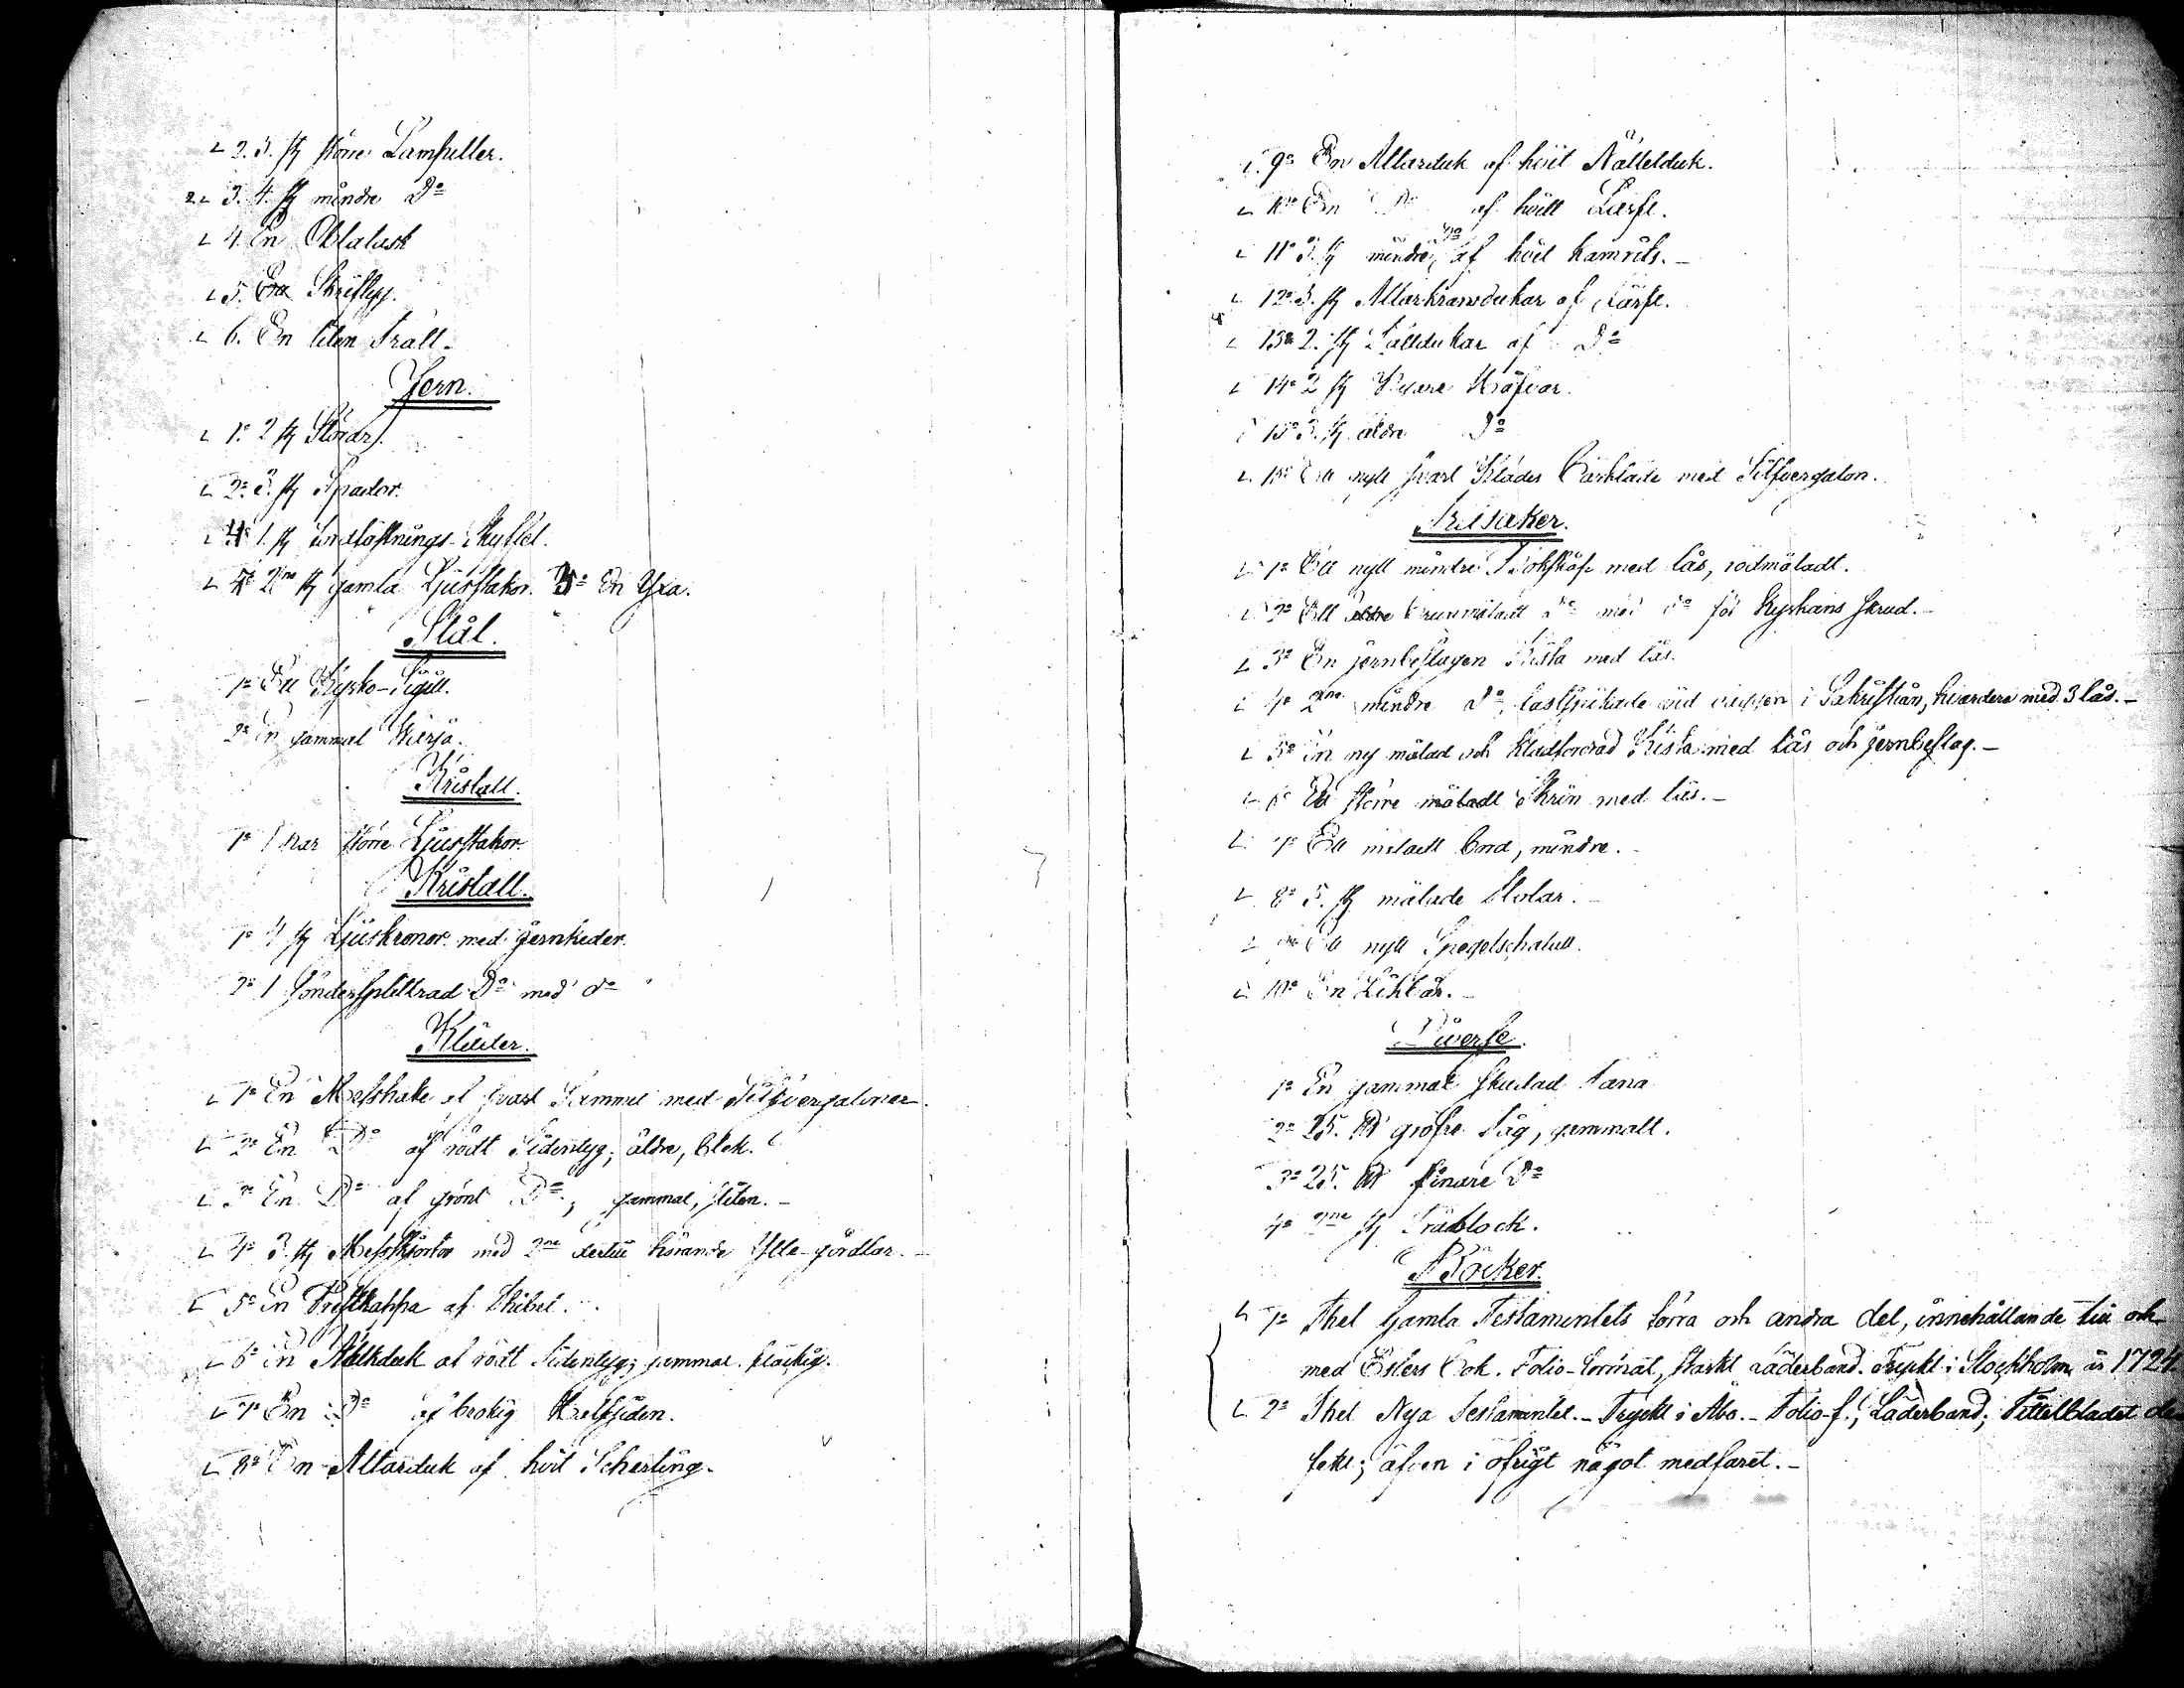 2. 3. st större Lampetter.
3. 4. st mindre D:o
4. En Oblatask
5. En Skriftyg.
6. En liten Tratt.
Jern.
1:o 2 st Störar.
2:o 3. st Spador.
4:o 1. st Skyffel.
2:ne st gamla Ljusstakor. 5:o En Yxa.
Stål.
1:o Ett Kyrko-Sigill.
2:o En gammal Värja.
Kristall.
1:o 1 par större Ljusstakor.
Kristall.
1:o 4 st Ljuskronor med jernkeder.
2:o 1 Söndersplittrad D:o med d:o
Kläder.
1:o En Messhake af svart Sammet med Silfvergaloner.
2:o En D:o af rödt Sidentyg; äldre, blek.
3:o En D:o af grönt D:o; gammal, sliten. -
4:o 3. st Messkjortor med 2:ne dertill hörande Ylle-gördlar. -
5:o En Prestkappa af Thibet.
6:o En Kalkduk af rödt Sidentyg; gammal fläckig.
7:o En D:o af brokig Halfsiden.
8:o En Altarduk af hvit Scherting.
9:o En Altarduk af hvit Nättelduk.
10:o En D:o af hvitt Lärft.
11:o 3. st mindre d:o af hvit kamrits. -
12:o 3. st Altarkransdukar af Lärft.
13:o 2. st dukar af D:o
14:o 2 st Nyare Håfvar.
15:o 3. st äldre D:o
Ett nytt svart Klädes Bårkläde med Silfvergalon.
Träsaker.
1:o Ett nytt mindre Bokskåp med lås, rödmåladt.
2:o Ett brunmåladt D:o med d:o för Kyrkans skrud. -
3:o En jernbeslagen Kista med lås.
4:o 2:ne mindre D:o, fastspikade vid väggen i Sakristian, hvardera med 3 lås. -
5:o En ny målad och klädfodrad Kista med lås och jernbeslag. -
6:o Ett större måladt Skrin med lås. -
7:o Ett måladt bord, mindre. -
8:o 5. st målade Stolar. -
9:o Ett nytt Spegelschatull.
10:o En Likbår. -
Diverse.
1:o En gammal skadad Fana
2:o 25. gröfre Tåg, gammalt.
3:o 25. finare D:o
4:o 2:ne st Träblock.
Böcker.
1:o Thet Gamla Testamentets förra och andra del, innehållande till och
med Esters Bok. Folio-format, starkt Läderband. Tryckt i Stockholm år 1724
2:o Thet Nya Testamentet. - Tryckt i Åbo. - Folio-f.; Läderband; Titelbladet de-
fekt; äfven i öfrigt något medfaret. -